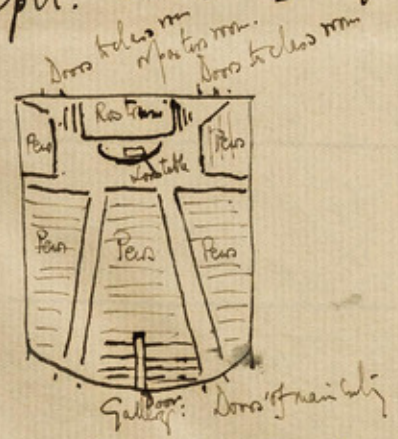 Doors to class room
or pastors room.
Doors to class room
Rostrum
Pews
Pews
table
Pews
Pews
Pews
Door
Gallery:
Doors of main